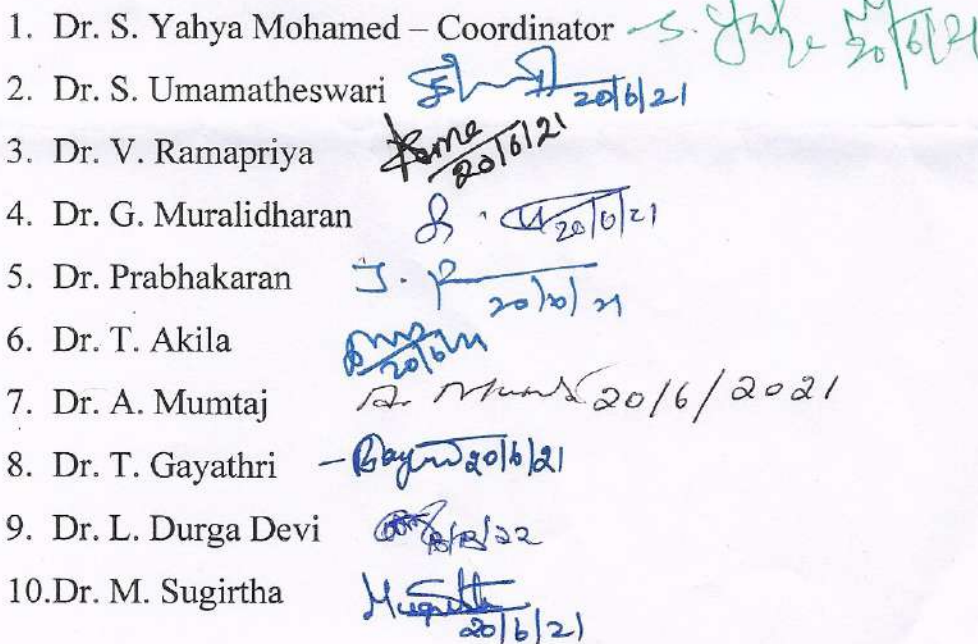 1. Dr. S. Yahya Mohamed – Coordinator S. 20/6/21
2. Dr. S. Umamatheswari 20/6/21
3. Dr. V. Ramapriya 20/6/21
4. Dr. G. Muralidharan 20/6/21
5. Dr. Prabhakaran J. P
6. Dr. T. Akila
7. Dr. A. Mumtaj A. 20/6/2021
8. Dr. T. Gayathri 20/6/21
9. Dr. L. Durga Devi
10.Dr. M. Sugirtha 20/6/21